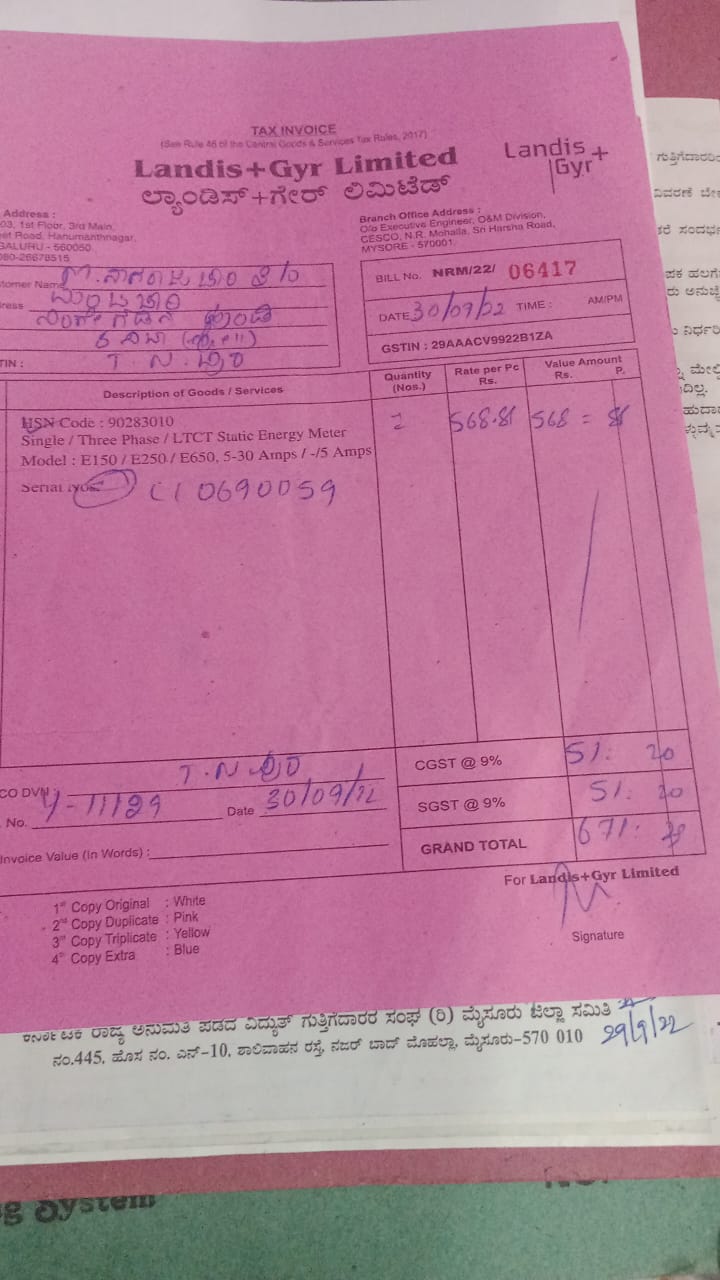 TAX INVOICE
(See Rule 46 of the Central Goods & Services Tax Rules, 2017)
Landis+Gyr Limited
Landis+
Gyr
ಲ್ಯಾಂಡಿಸ್+ಗೇರ್ ಲಿಮಿಟೆಡ್
Address :
03, 1st Floor, 3rd Main,
et Road, Hanumanthnagar,
GALURU - 560050.
080-26678515
Branch Office Address :
O/o Executive Engineer, O&M Division,
CESCO, N.R. Mohalla, Sri Harsha Road,
MYSORE - 570001.
tomer Name
ress
TIN : T. N.
BILL No. NRM/22/ 06417
DATE 30/09/22 TIME : AM/PM
GSTIN : 29AAACV9922B1ZA
Description of Goods / Services
Quantity (Nos.)
Rate per Pc Rs.
Value Amount Rs. P.
HSN Code : 90283010
Single / Three Phase / LTCT Static Energy Meter
Model : E150 / E250 / E650, 5-30 Amps / -/5 Amps
Serial Nos. C10690059
568.81 568 =
T. N.
CO DVN
No. Y-11129 Date 30/09/22
Invoice Value (in Words) :
CGST @ 9% 51. 20
SGST @ 9% 51. 20
GRAND TOTAL 671.
For Landis+Gyr Limited
Signature
1st Copy Original : White
2nd Copy Duplicate : Pink
3rd Copy Triplicate : Yellow
4th Copy Extra : Blue
ಕರ್ನಾಟಕ ರಾಜ್ಯ ಅನುಮತಿ ಪಡೆದ ವಿದ್ಯುತ್ ಗುತ್ತಿಗೆದಾರರ ಸಂಘ (ರಿ) ಮೈಸೂರು ಜಿಲ್ಲಾ ಸಮಿತಿ
ನಂ.445, ಹೊಸ ನಂ. ಎನ್-10, ಶಾಲಿವಾಹನ ರಸ್ತೆ, ನಜರ್ ಬಾದ್ ಮೊಹಲ್ಲಾ, ಮೈಸೂರು-570 010
29/9/22
g System